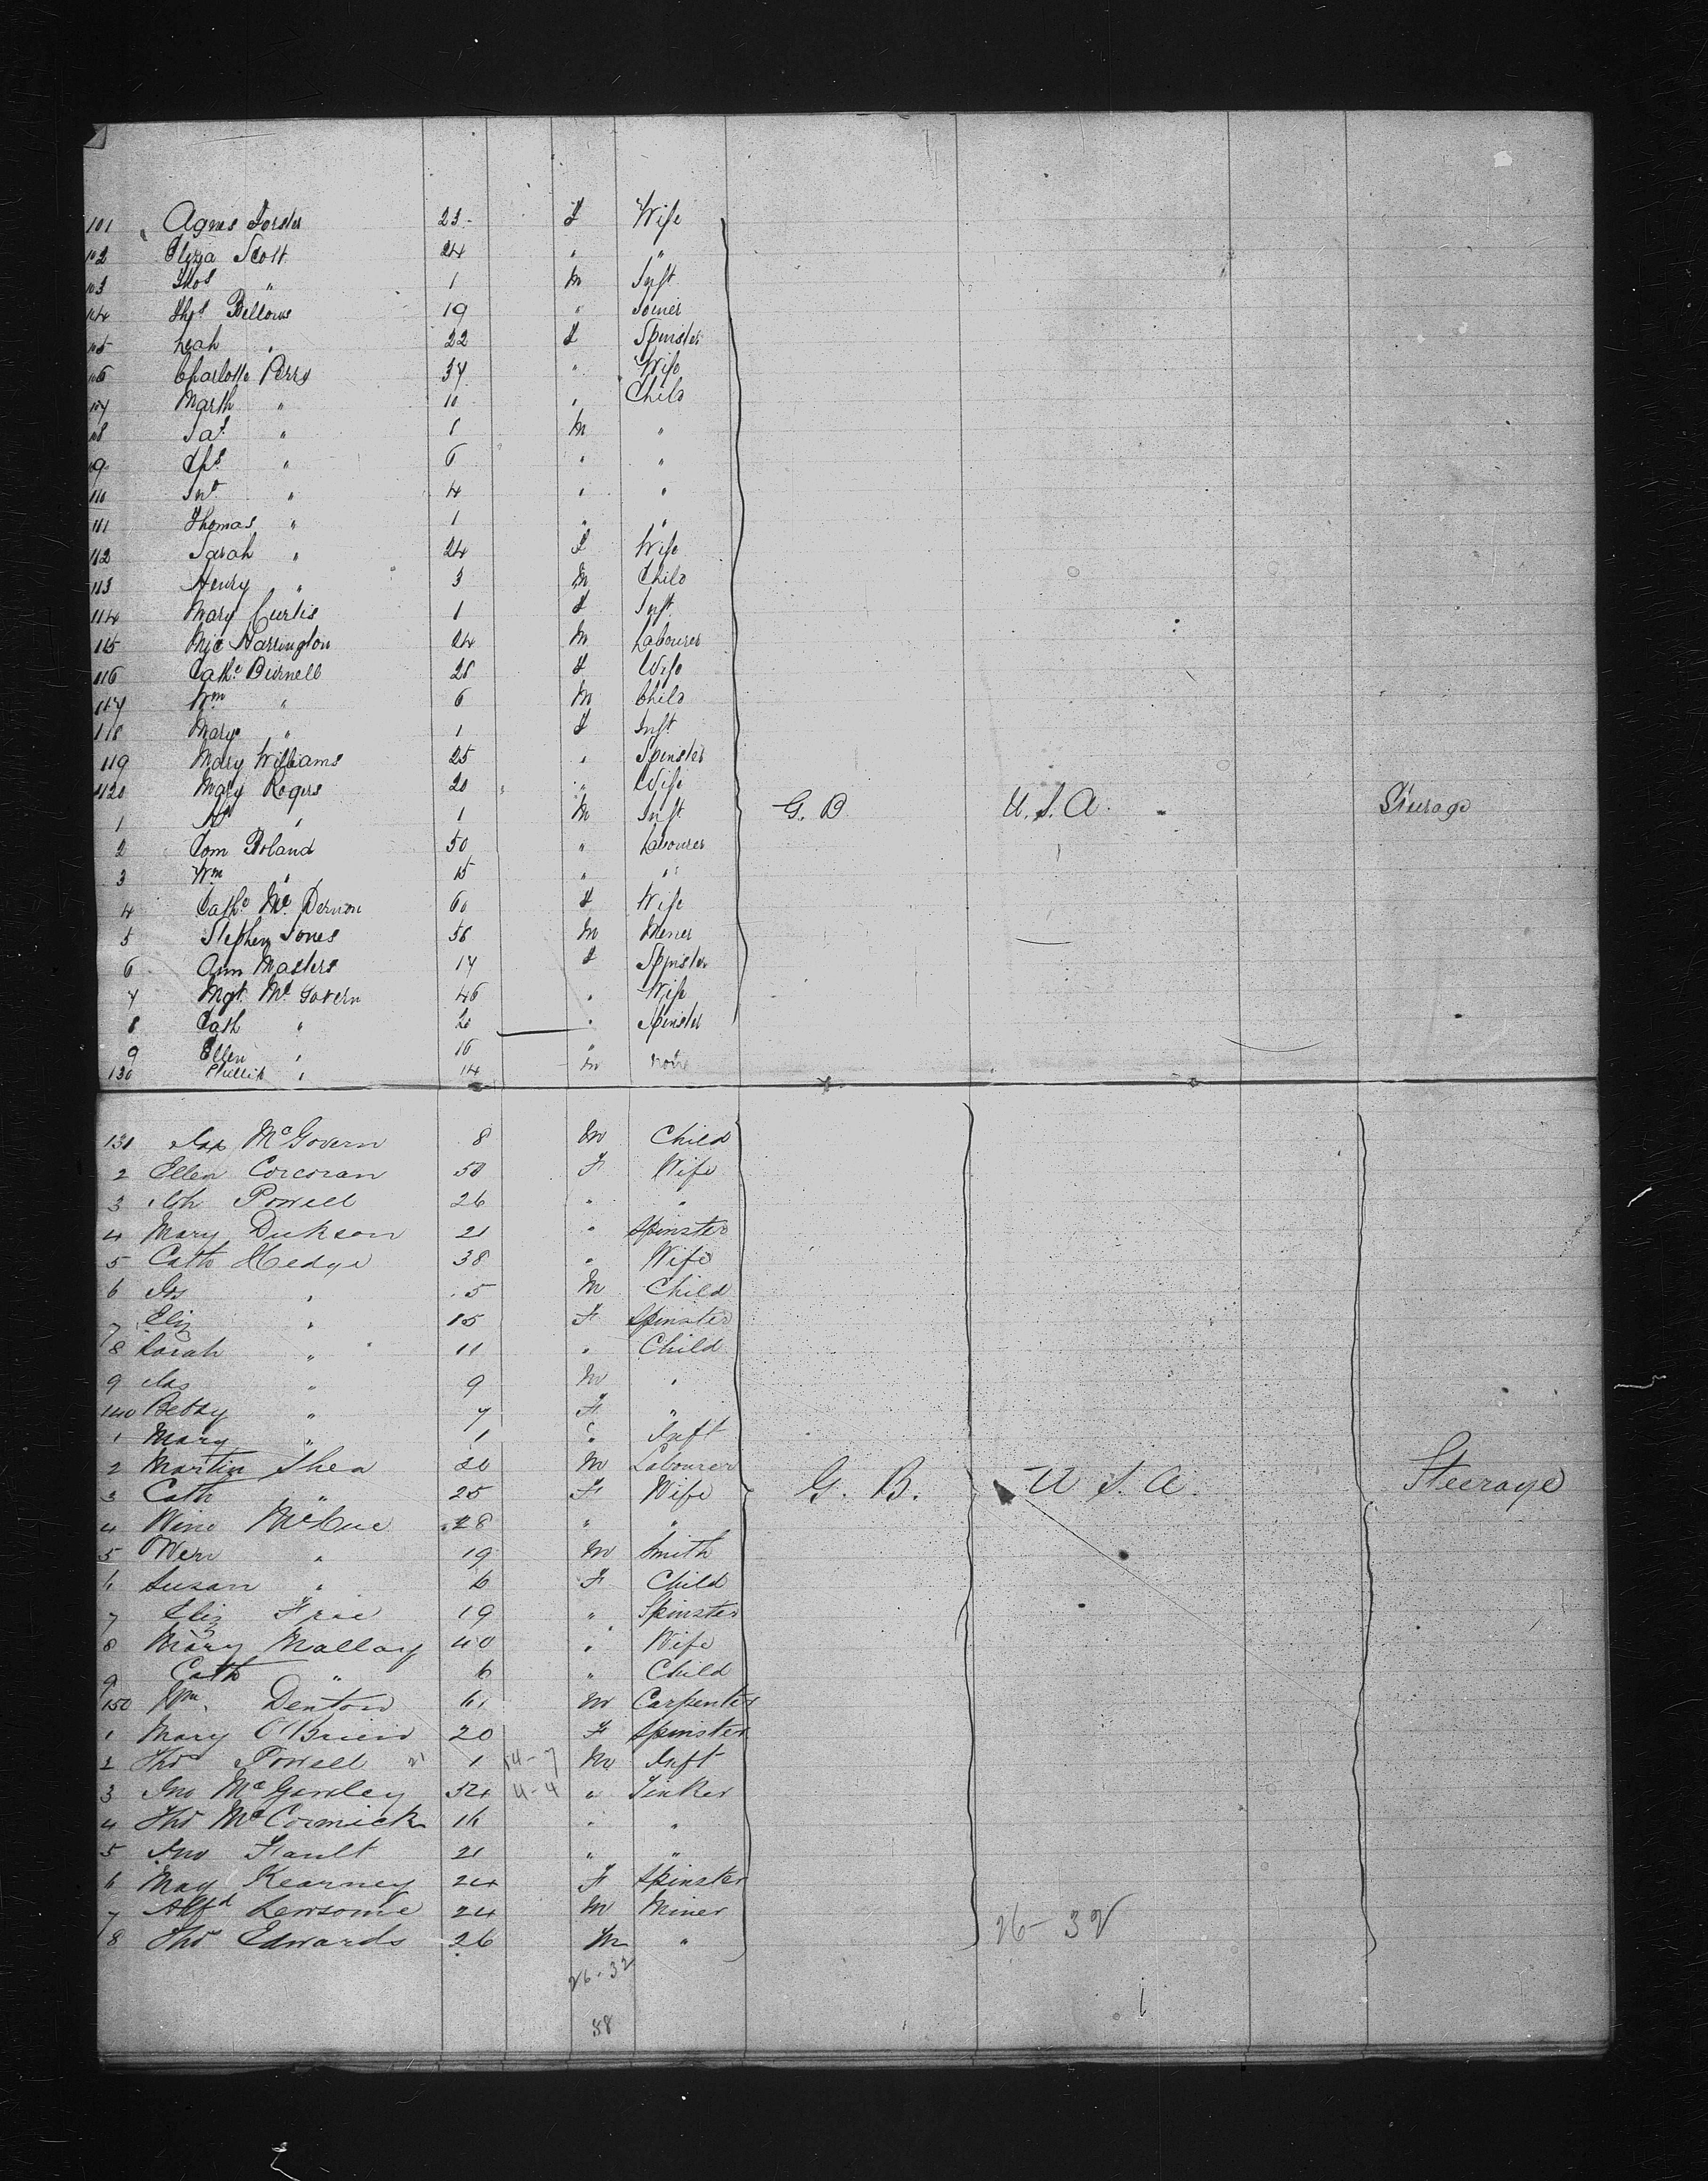 101 Agnes Forster 23 F Wife
102 Eliza Scott 24 " "
103 Thos " 1 M Inft
104 Thos Bellows 19 " Joiner
105 Leah " 22 F Spinster
106 Charlotte Perry 34 " Wife
107 Marth " 10 " Child
108 Jas " 8 M "
109 Chs " 6 " "
110 Jno " 4 " "
111 Thomas " 1 " "
112 Sarah " 24 F Wife
113 Henry " 3 M Child
114 Mary Curtis 1 F Inft
115 Mic Harrington 24 M Labourer
116 Cathe Burnell 28 F Wife
117 Wm " 6 M Child
118 Mary " 1 F Inft
119 Mary Williams 25 " Spinster
120 Mary Rogers 20 " Wife
1 " 1 M Inft G. B. U.S.A. Steerage
2 Tom Boland 50 " Labourer
3 Wm " 15 " "
4 Cathe Mc Dermon 60 F Wife
5 Stephen Jones 58 M Miner
6 Ann Masters 17 F Spinster
7 Mgt Mc Govern 46 " Wife
8 Cath " 20 " Spinster
9 Ellen " 16 "
130 Phillip " 14 M none
131 Jas McGovern 8 M Child
2 Ellen Corcoran 50 F Wife
3 Powell 26 " "
4 Mary Dickson 21 " Spinster
5 Cath Hedge 38 " Wife
6 Jos " 5 M Child
7 Eliz " 15 F Spinster
8 Sarah " 11 " Child
9 Jas " 9 M "
140 Betsy " 7 F "
1 Mary " 1 " Inft
2 Martin Shea 30 M Labourer
3 Cath " 25 F Wife G. B. U. S. A. Steerage
4 Wine McCue 28 " "
5 Owen " 19 M Smith
6 Susan " 6 F Child
7 Eliz Frie 19 " Spinster
8 Mary Mallay 40 " Wife
9 Cath " 6 " Child
150 Wm Denton 61 M Carpenter
1 Mary O'Brien 20 F Spinster
2 Thos Powell 1 14-7 M Inft
3 Jno McGarley 52 4-4 " Tinker
4 Thos McCormick 16 " "
5 Jno Fault 21 " "
6 May Kearney 24 F Spinster
7 Alfd Lewsome 24 M Miner
8 Thos Edwards 26 M " 26-32
26-32
58